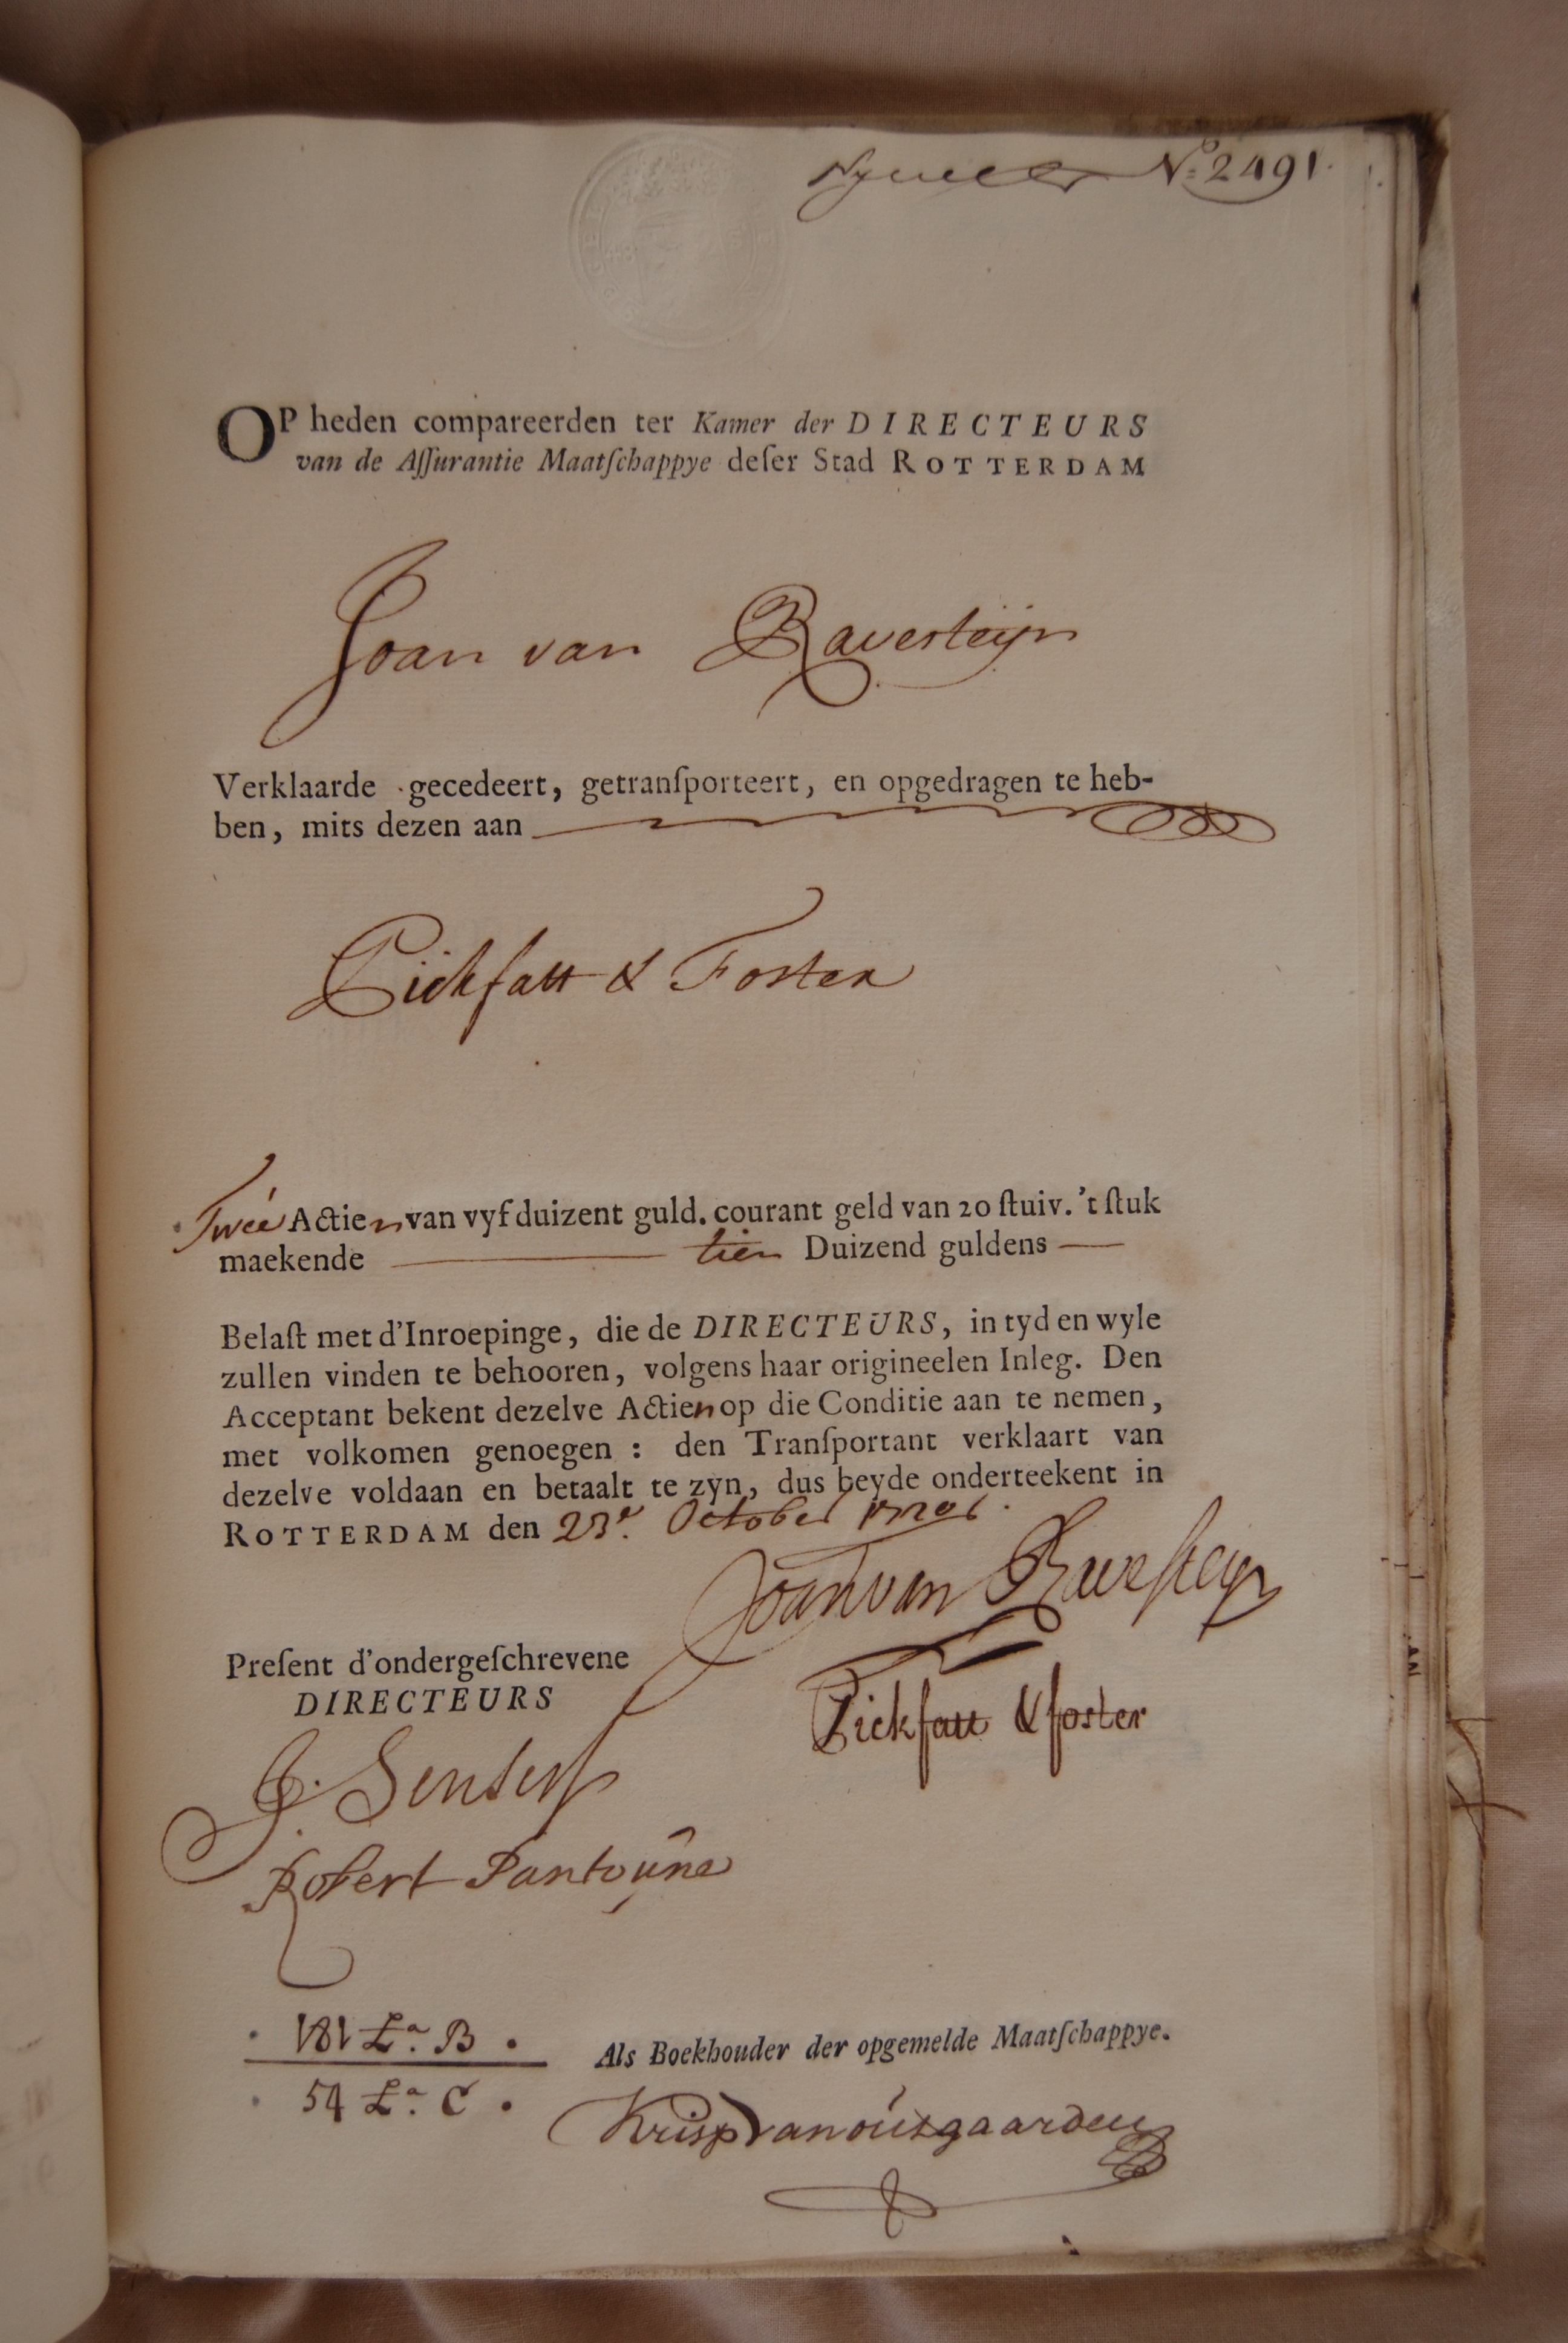 N:º 2491.
OP heden compareerden ter Kamer der DIRECTEURS
van de Aſſurantie Maatſchappye deſer Stad ROTTERDAM
Joan van Ravesteijn
Verklaarde gecedeert, getranſporteert, en opgedragen te heb-
ben, mits dezen aan
Pickfatt & Foster
Twée Actien van vyf duizent guld. courant geld van 20 ſtuiv. 't ſtuk
maekende tien Duizend guldens
Belaſt met d'Inroepinge, die de DIRECTEURS, in tyd en wyle
zullen vinden te behooren, volgens haar origineelen Inleg. Den
Acceptant bekent dezelve Actien op die Conditie aan te nemen,
met volkomen genoegen : den Tranſportant verklaart van
dezelve voldaan en betaalt te zyn, dus beyde onderteekent in
ROTTERDAM den 23e. October
Joan van Ravesteijn
Preſent d'ondergeſchrevene
DIRECTEURS
Pickfatt & foster
Robert
181 La. B.
Als Boekhouder der opgemelde Maatſchappye.
54 La. C.